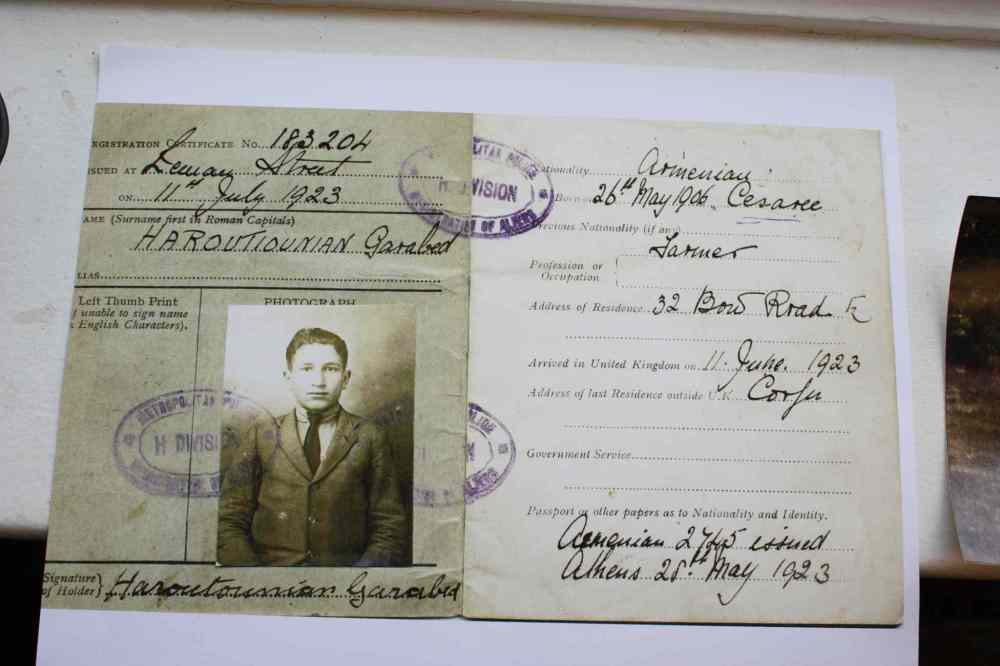 REGISTRATION CERTIFICATE No. 183204
ISSUED AT Leman Street
ON 11th July 1923
NAME (Surname first in Roman Capitals)
HAROUTIOUNIAN Garabed
ALIAS
Left Thumb Print
unable to sign name
English Characters).
PHOTOGRAPH
METROPOLITAN POLICE
H DIVISION
REGISTRATION OF ALIENS
Signature
of Holder} Haroutounian Garabed
METROPOLITAN POLICE
H DIVISION
REGISTRATION OF ALIENS
Nationality Armenian
Born on 26th May 1906 Cesaree
Previous Nationality (if any)
Profession or
Occupation Farmer
Address of Residence 32 Bow Road E
Arrived in United Kingdom on 11 June. 1923
Address of last Residence outside U.K. Corfu
Government Service
Passport or other papers as to Nationality and Identity.
Armenian 2745 issued
Athens 28th May 1923